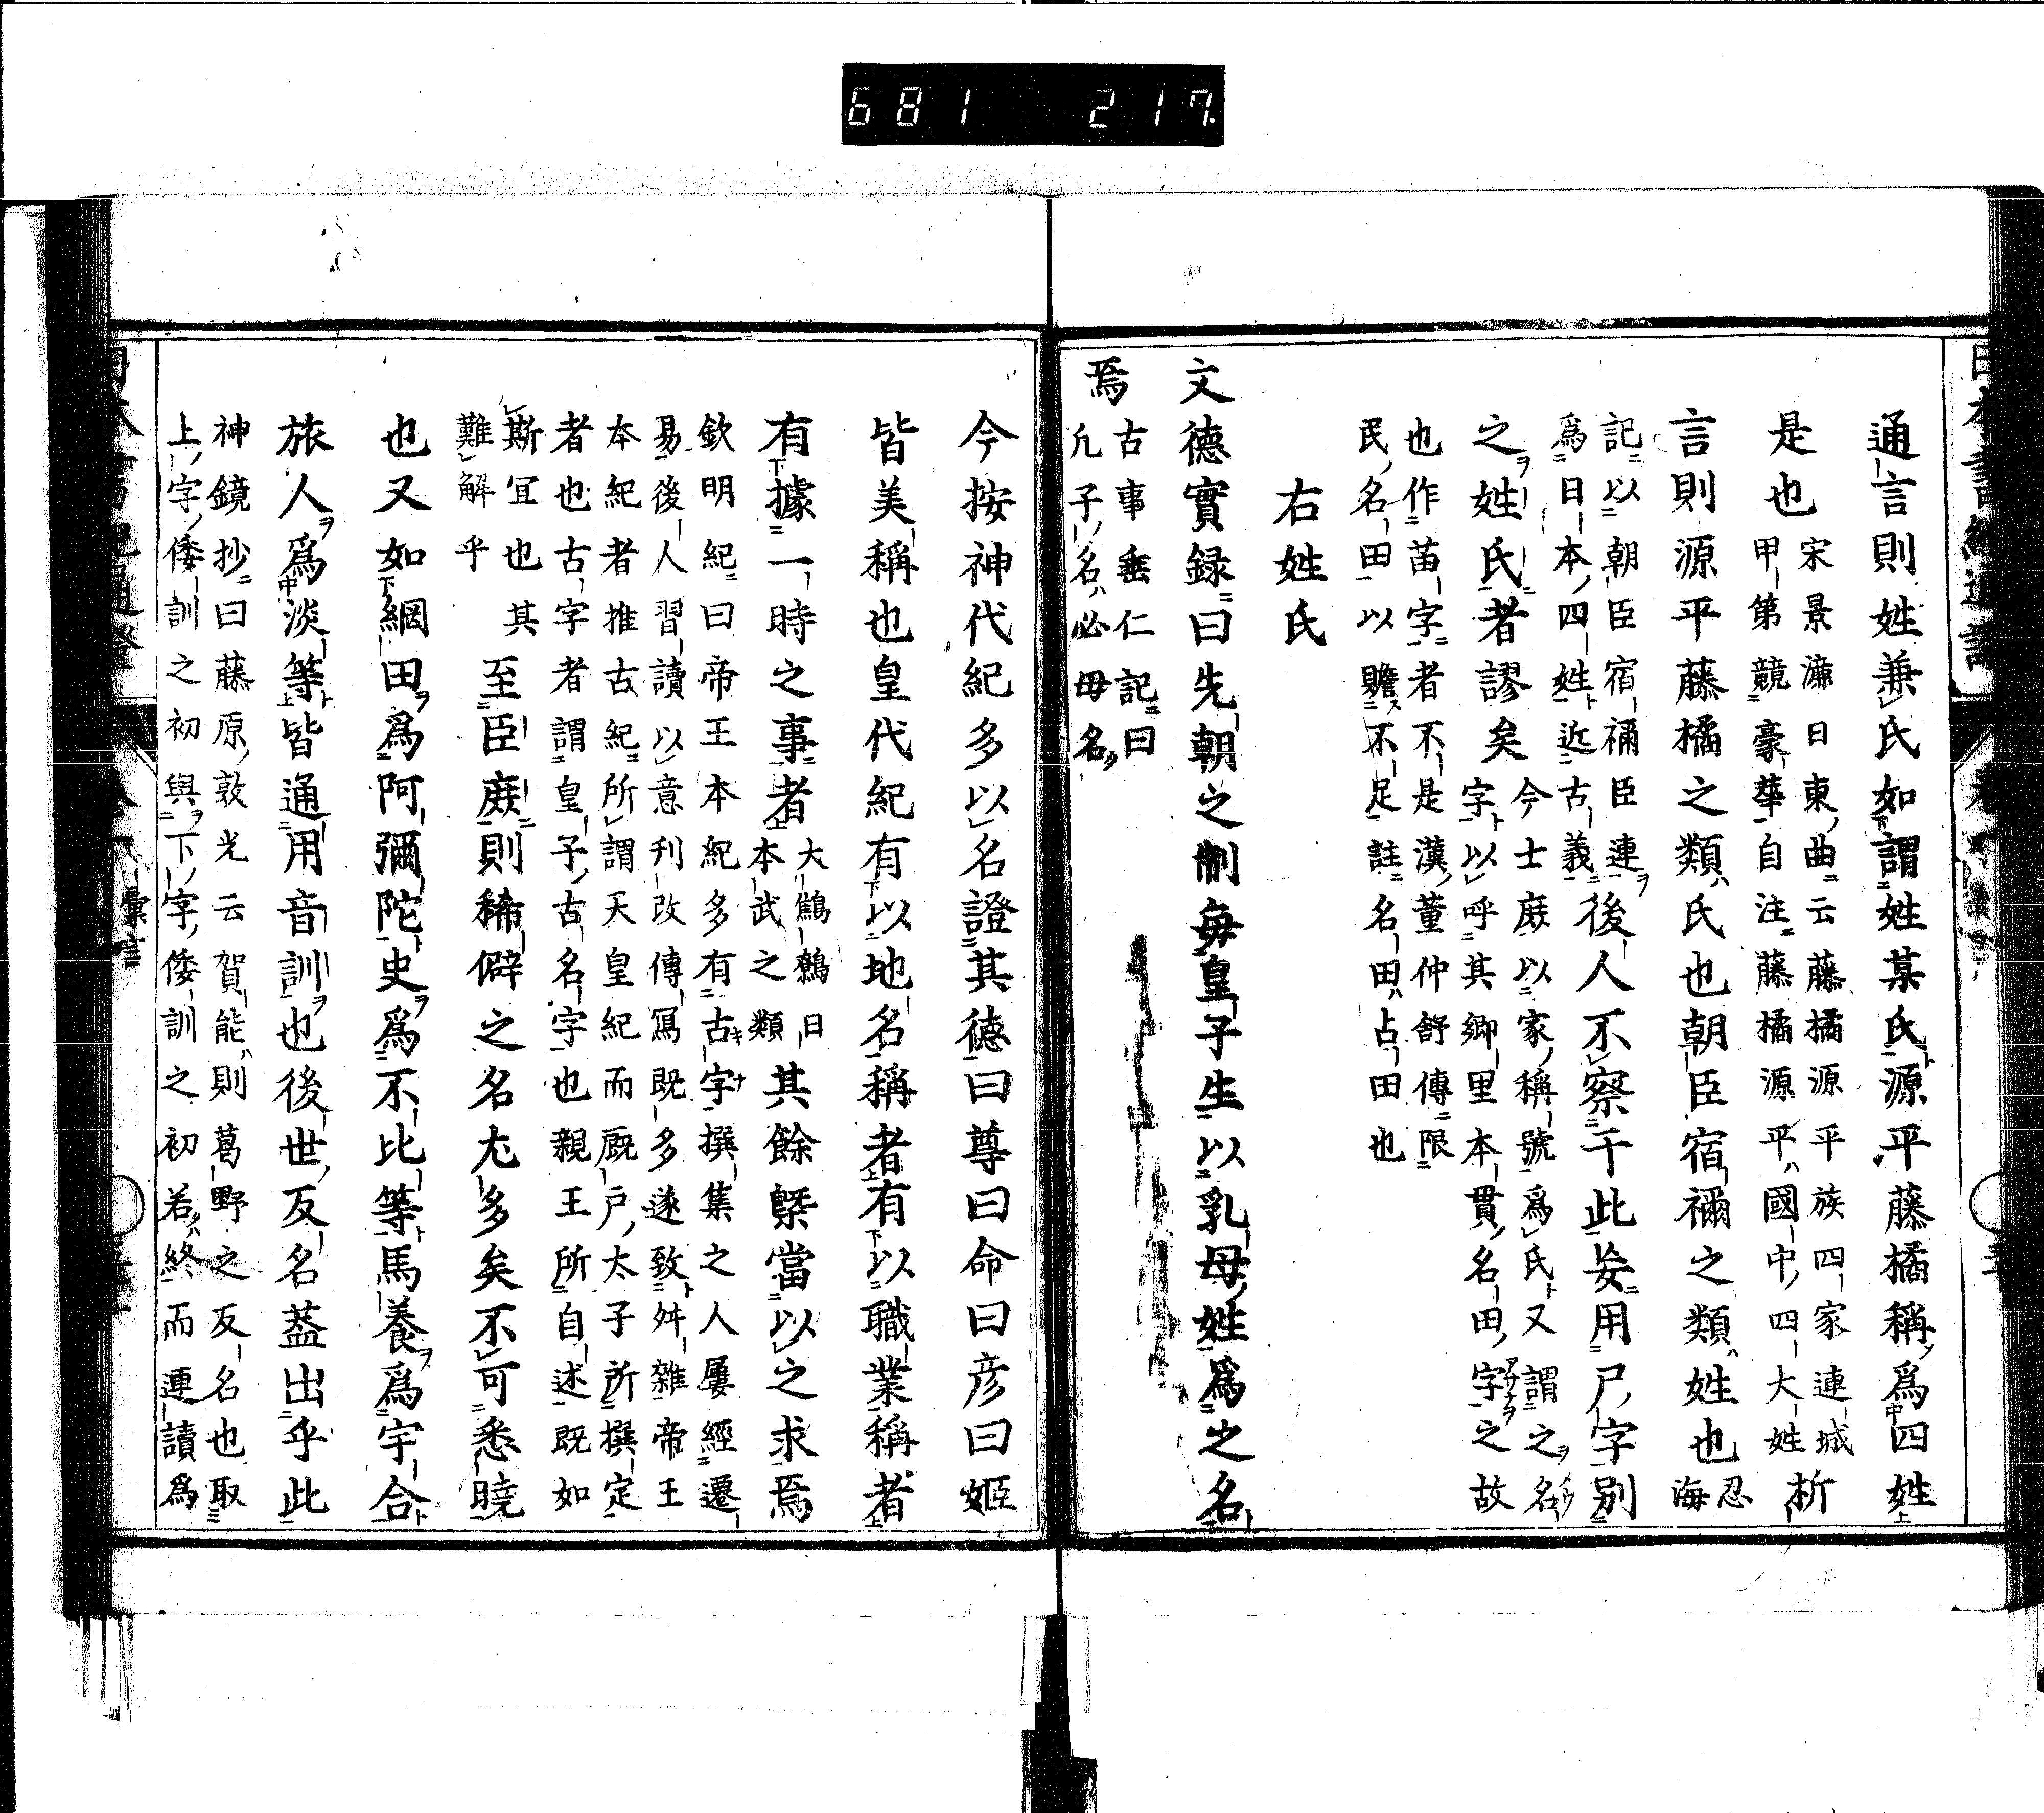 681 217
通言則姓兼氏如謂姓某氏源平藤橘稱爲四姓
是也宋景濂日東曲云藤橘源平族四家連城
甲第競豪華自注藤橘源平國中四大姓析
言則源平藤橘之類氏也朝臣宿禰之類姓也忍
海
記以朝臣宿禰臣連
爲日本四姓近古義後人不察于此妄用尸字別
之姓氏者謬矣今士庶以家稱號爲氏又謂之名
字以呼其鄉里本貫名田字之故
也作苗字者不是漢董仲舒傳限
民名田以贍不足註名田占田也
右姓氏
文德實録曰先朝之制每皇子生以乳母姓爲之名
焉古事垂仁記曰
凢子名必母名
今按神代紀多以名證其德曰尊曰命曰彦曰姬
皆美稱也皇代紀有以地名稱者有以職業稱者
有據一時之事者大鷦鷯日
本武之類其餘槩當以之求焉
欽明紀曰帝王本紀多有古字撰集之人屢經遷
易後人習讀以意刊改傳寫既多遂致舛雜帝王
本紀者推古紀所謂天皇紀而厩戸太子所撰定
者也古字者謂皇子古名字也親王所自述既如
斯宜也其
難解乎至臣庶則稀僻之名尤多矣不可悉曉
也又如網田爲阿彌陀史爲不比等馬養爲宇合
旅人爲淡等皆通用音訓也後世反名葢出乎此
神鏡抄曰藤原敦光云賀能則葛野之反名也取
上字倭訓之初與下字倭訓之初若終而連讀爲
彙言